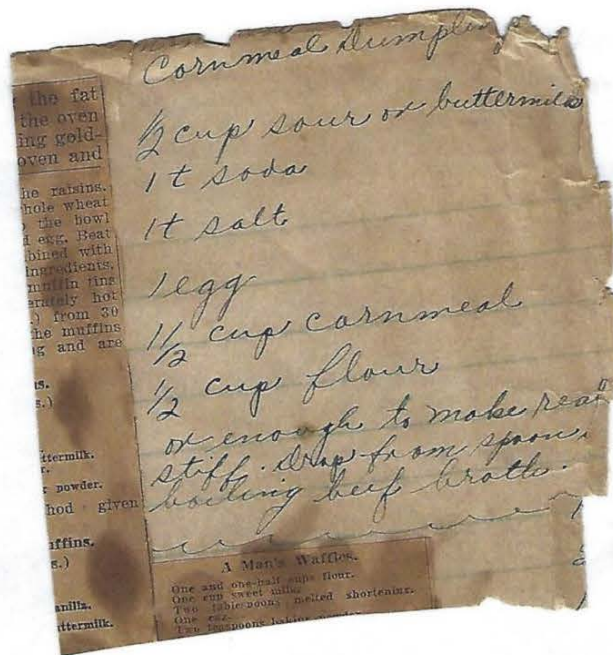 Cornmeal Dumplin
½ cup sour or buttermilk
1 t soda
1 t salt
1 egg
1½ cup cornmeal
½ cup flour
or enough to make real
stiff. Drop from spoon
boiling beef broth.
the fat
the oven
ing gold-
oven and
he raisins.
hole wheat
the bowl
egg. Beat
bined with
ingredients.
muffin tins
erately hot
.) from 30
he muffins
g and are
s.)
ttermilk.
r.
powder.
hod given
uffins.
s.)
anilla.
ttermilk.
A Man's Waffles.
One and one-half cups flour.
One cup sweet milk.
Two tablespoons melted shortening.
One egg.
Two teaspoons baking powder